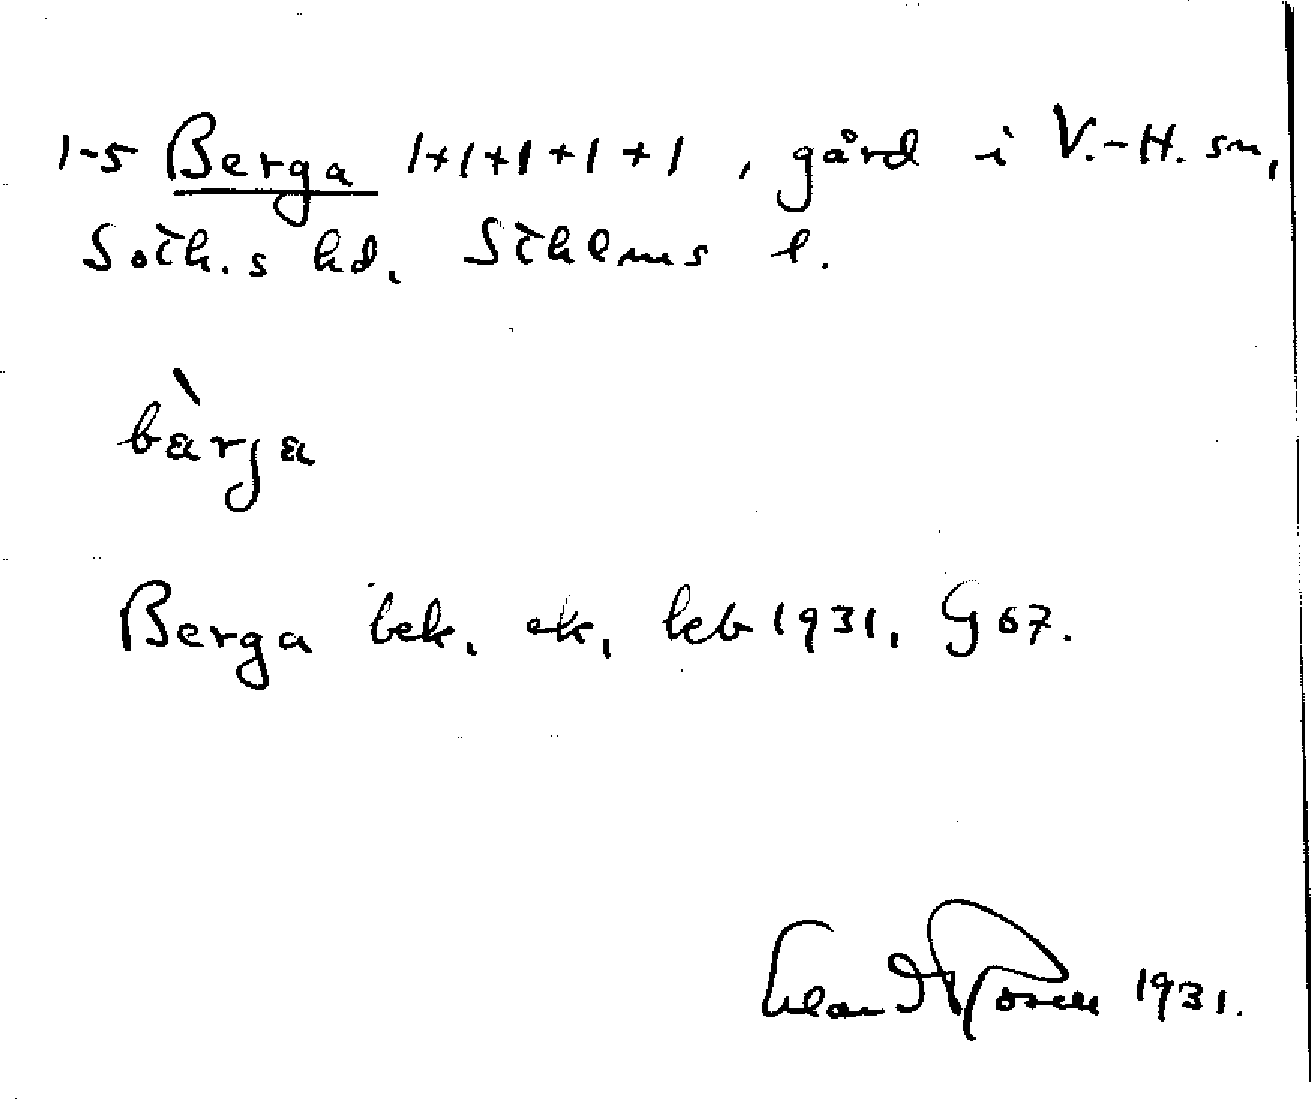 1-5 Berga 1+1+1+1+1, gård i V.-H. sn,
Soth.s hd. Sthlms l.
bàrja
Berga bek. ek. kb 1931. G 67.
1931.